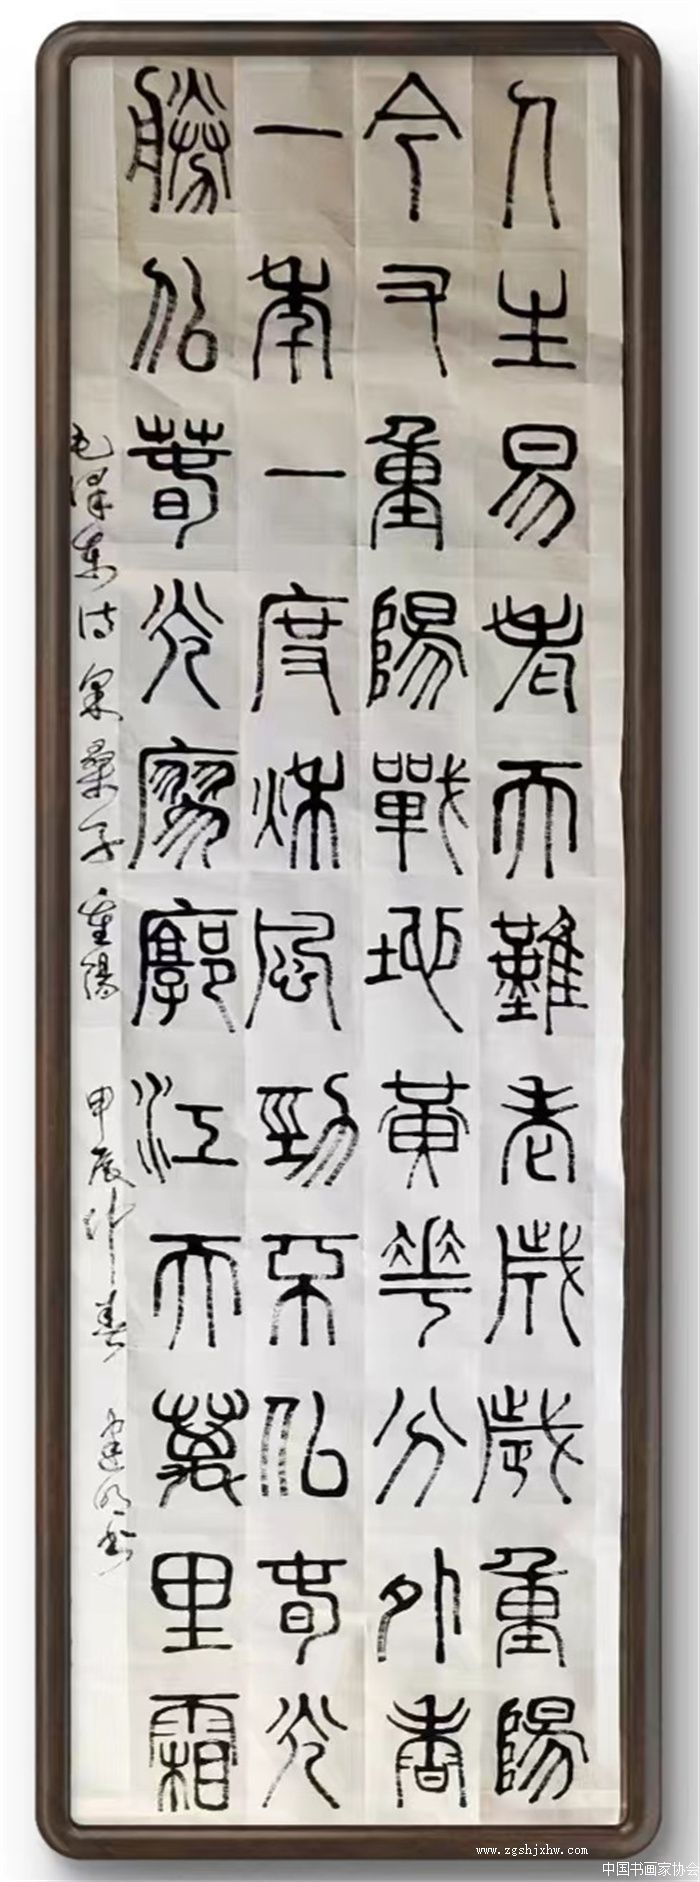 人生易老天難老歲歲重陽
今又重陽戰地黃華分外香
一年一度秋風勁不似春光
勝似春光寥廓江天萬里霜
毛澤東詩采桑子重陽 甲辰仲春 建明書
www.zgshjxhw.com
中国书画家协会